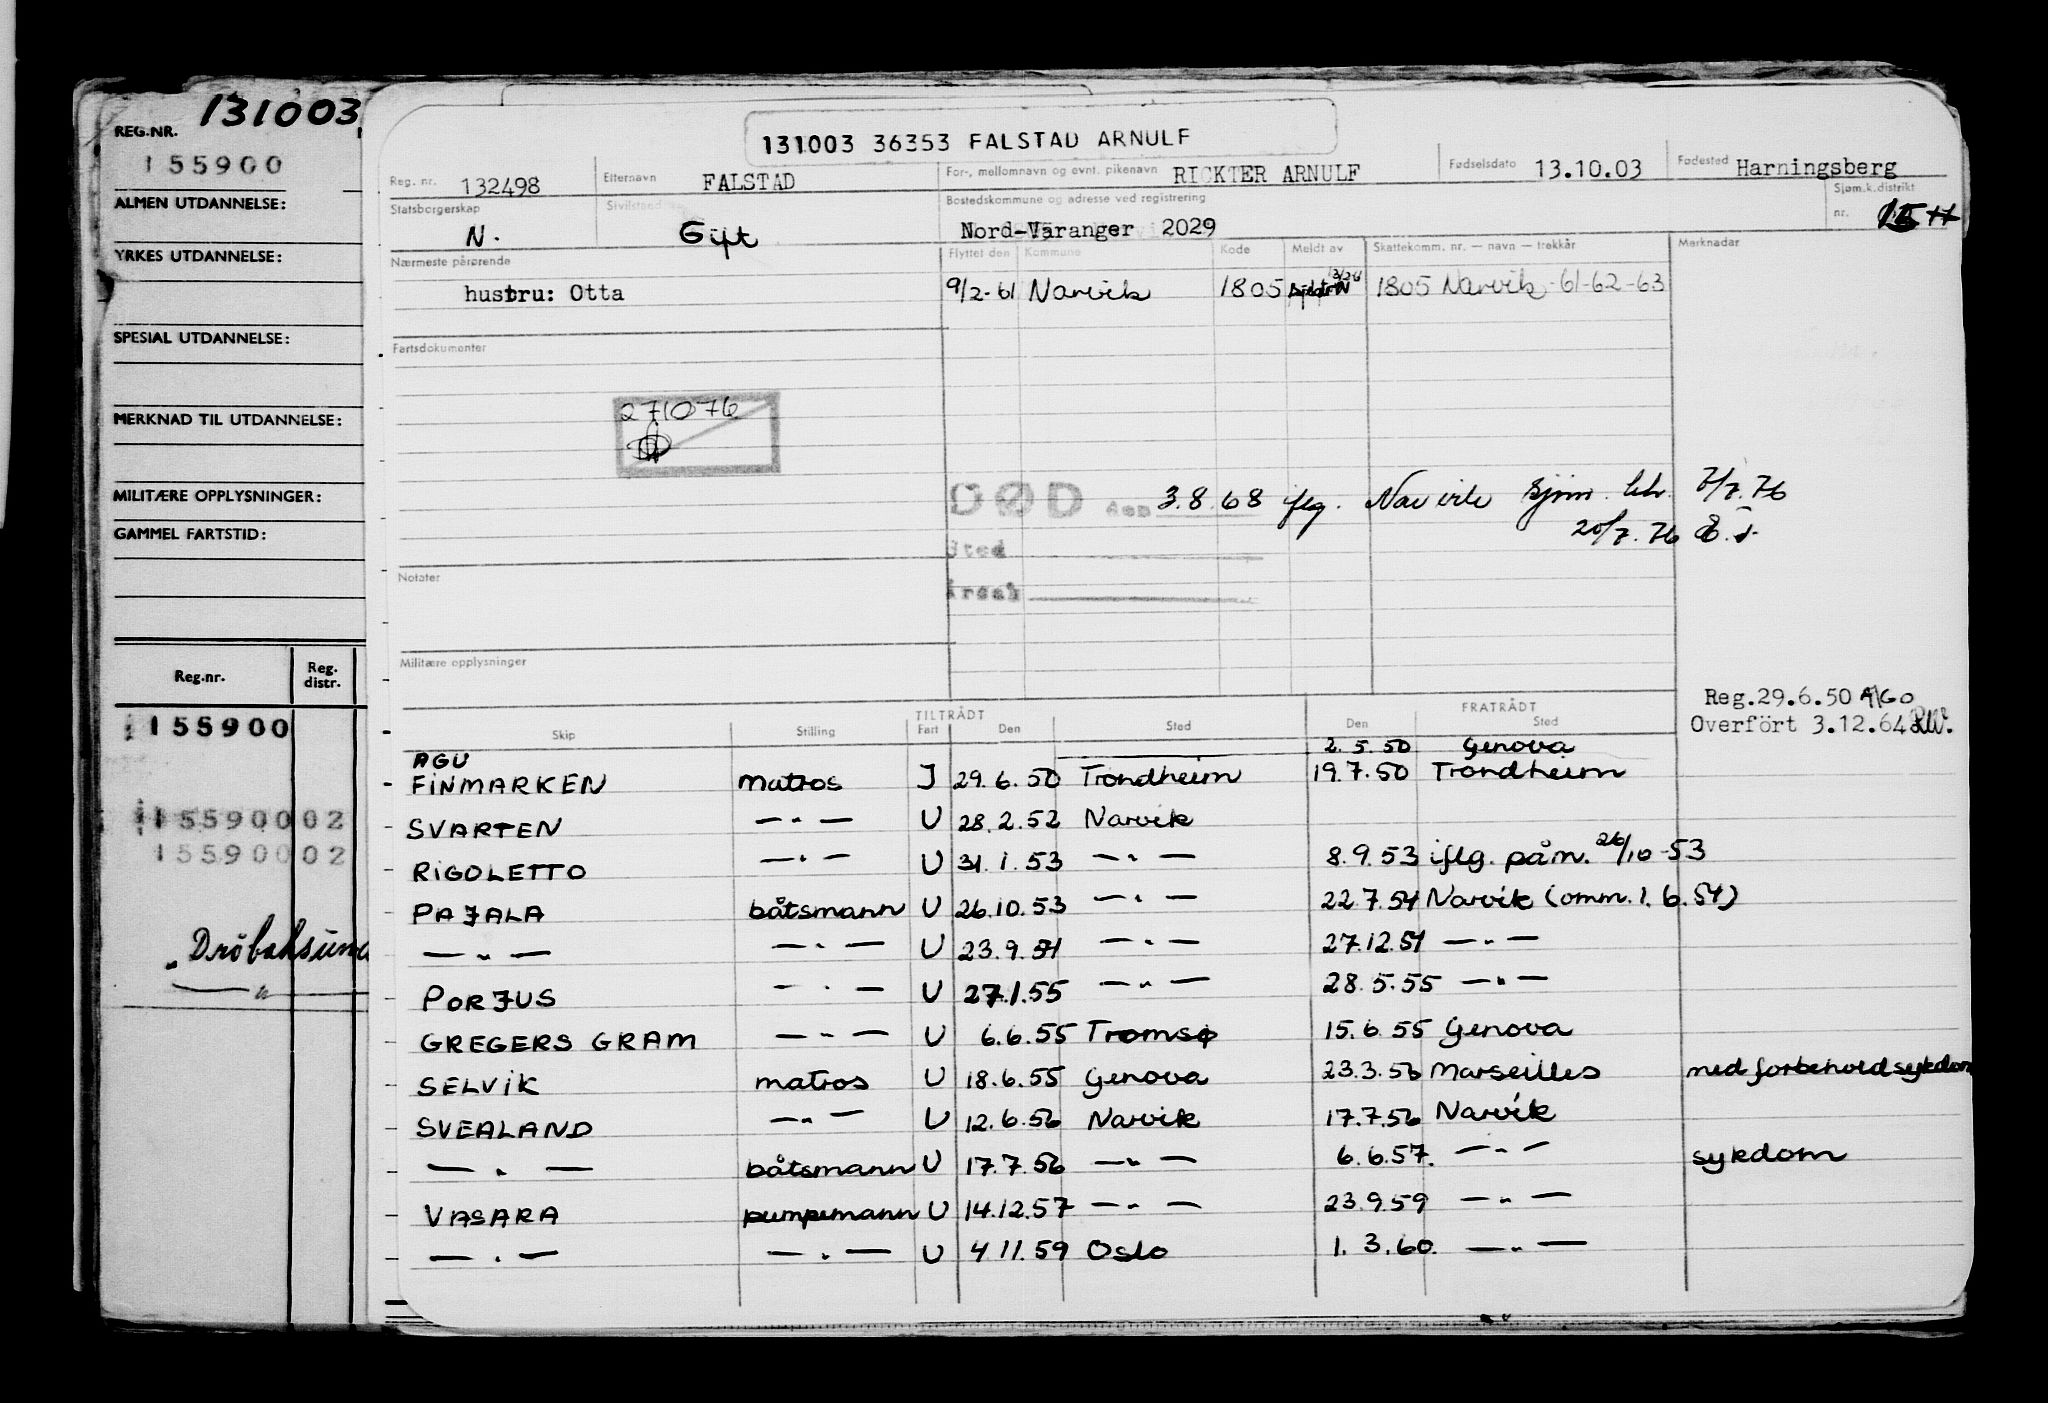 131003
REG.NR.
155900
ALMEN UTDANNELSE:
YRKES UTDANNELSE:
SPESIAL UTDANNELSE:
MERKNAD TIL UTDANNELSE:
MILITÆRE OPPLYSNINGER:
GAMMEL FARTSTID:
Reg.nr. Reg. distr.
155900
15590002
15590002
Drôbaksund
— " —
131003 36353 FALSTAD ARNULF
Reg. nr. 132498 Etternavn FALSTAD For-, mellomnavn og evnt. pikenavn RICKTER ARNULF Fødselsdato 13.10.03 Fødested Harningsberg
Statsborgerskap N. Sivilstand Gift Bostedskommune og adresse ved registrering Nord-Varanger 2029 Sjøm.k.distrikt nr.
Nærmeste pårørende Flyttet den Kommune Kode Meldt av Skattekomm. nr. — navn — trekkår Merknader
hustru: Otta 9/2-61 Narvik 1805 1805 Narvik-61-62-63
Fartsdokumenter
271076
DØD den 3.8.68 iflg. Narvik sjøm. 7/7.76
20/7.76
Sted
Årsak
Notater
Militære opplysninger
Reg.29.6.50
Overfört 3.12.64 RW.
TILTRÅDT FRATRÅDT
Skip Stilling Fart Den Sted Den Sted
AGU 2.5.50 Genova
FINMARKEN matros I 29.6.50 Trondheim 19.7.50 Trondheim
SVARTEN — " — U 28.2.52 Narvik
RIGOLETTO — " — U 31.1.53 — " — 8.9.53 iflg. påm. 26/10-53
PAJALA båtsmann U 26.10.53 — " — 22.7.54 Narvik (omm. 1.6.54)
— " — — " — U 23.9.54 — " — 27.12.54 — " —
PORJUS — " — U 27.1.55 — " — 28.5.55 — " —
GREGERS GRAM — " — U 6.6.55 Tromsø 15.6.55 Genova
SELVIK matros U 18.6.55 Genova 23.3.56 Marseilles med forbehold sykdom
SVEALAND — " — U 12.6.56 Narvik 17.7.56 Narvik
— " — båtsmann U 17.7.56 — " — 6.6.57. — " — sykdom
VASARA pumpemann U 14.12.57 — " — 23.9.59 — " —
— " — — " — U 4.11.59 Oslo 1.3.60. — " —